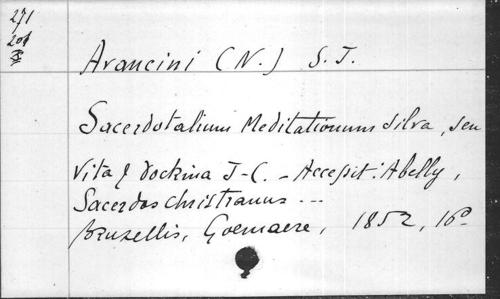 271
201
Avancini (N.) S.J.
Sacerdotalium Meditationum Silva, seu
Vita & doctrina J-C. - Accessit: Abelly,
Sacerdos Christianus ...
Bruxellis, Goemaere, 1852, 16º